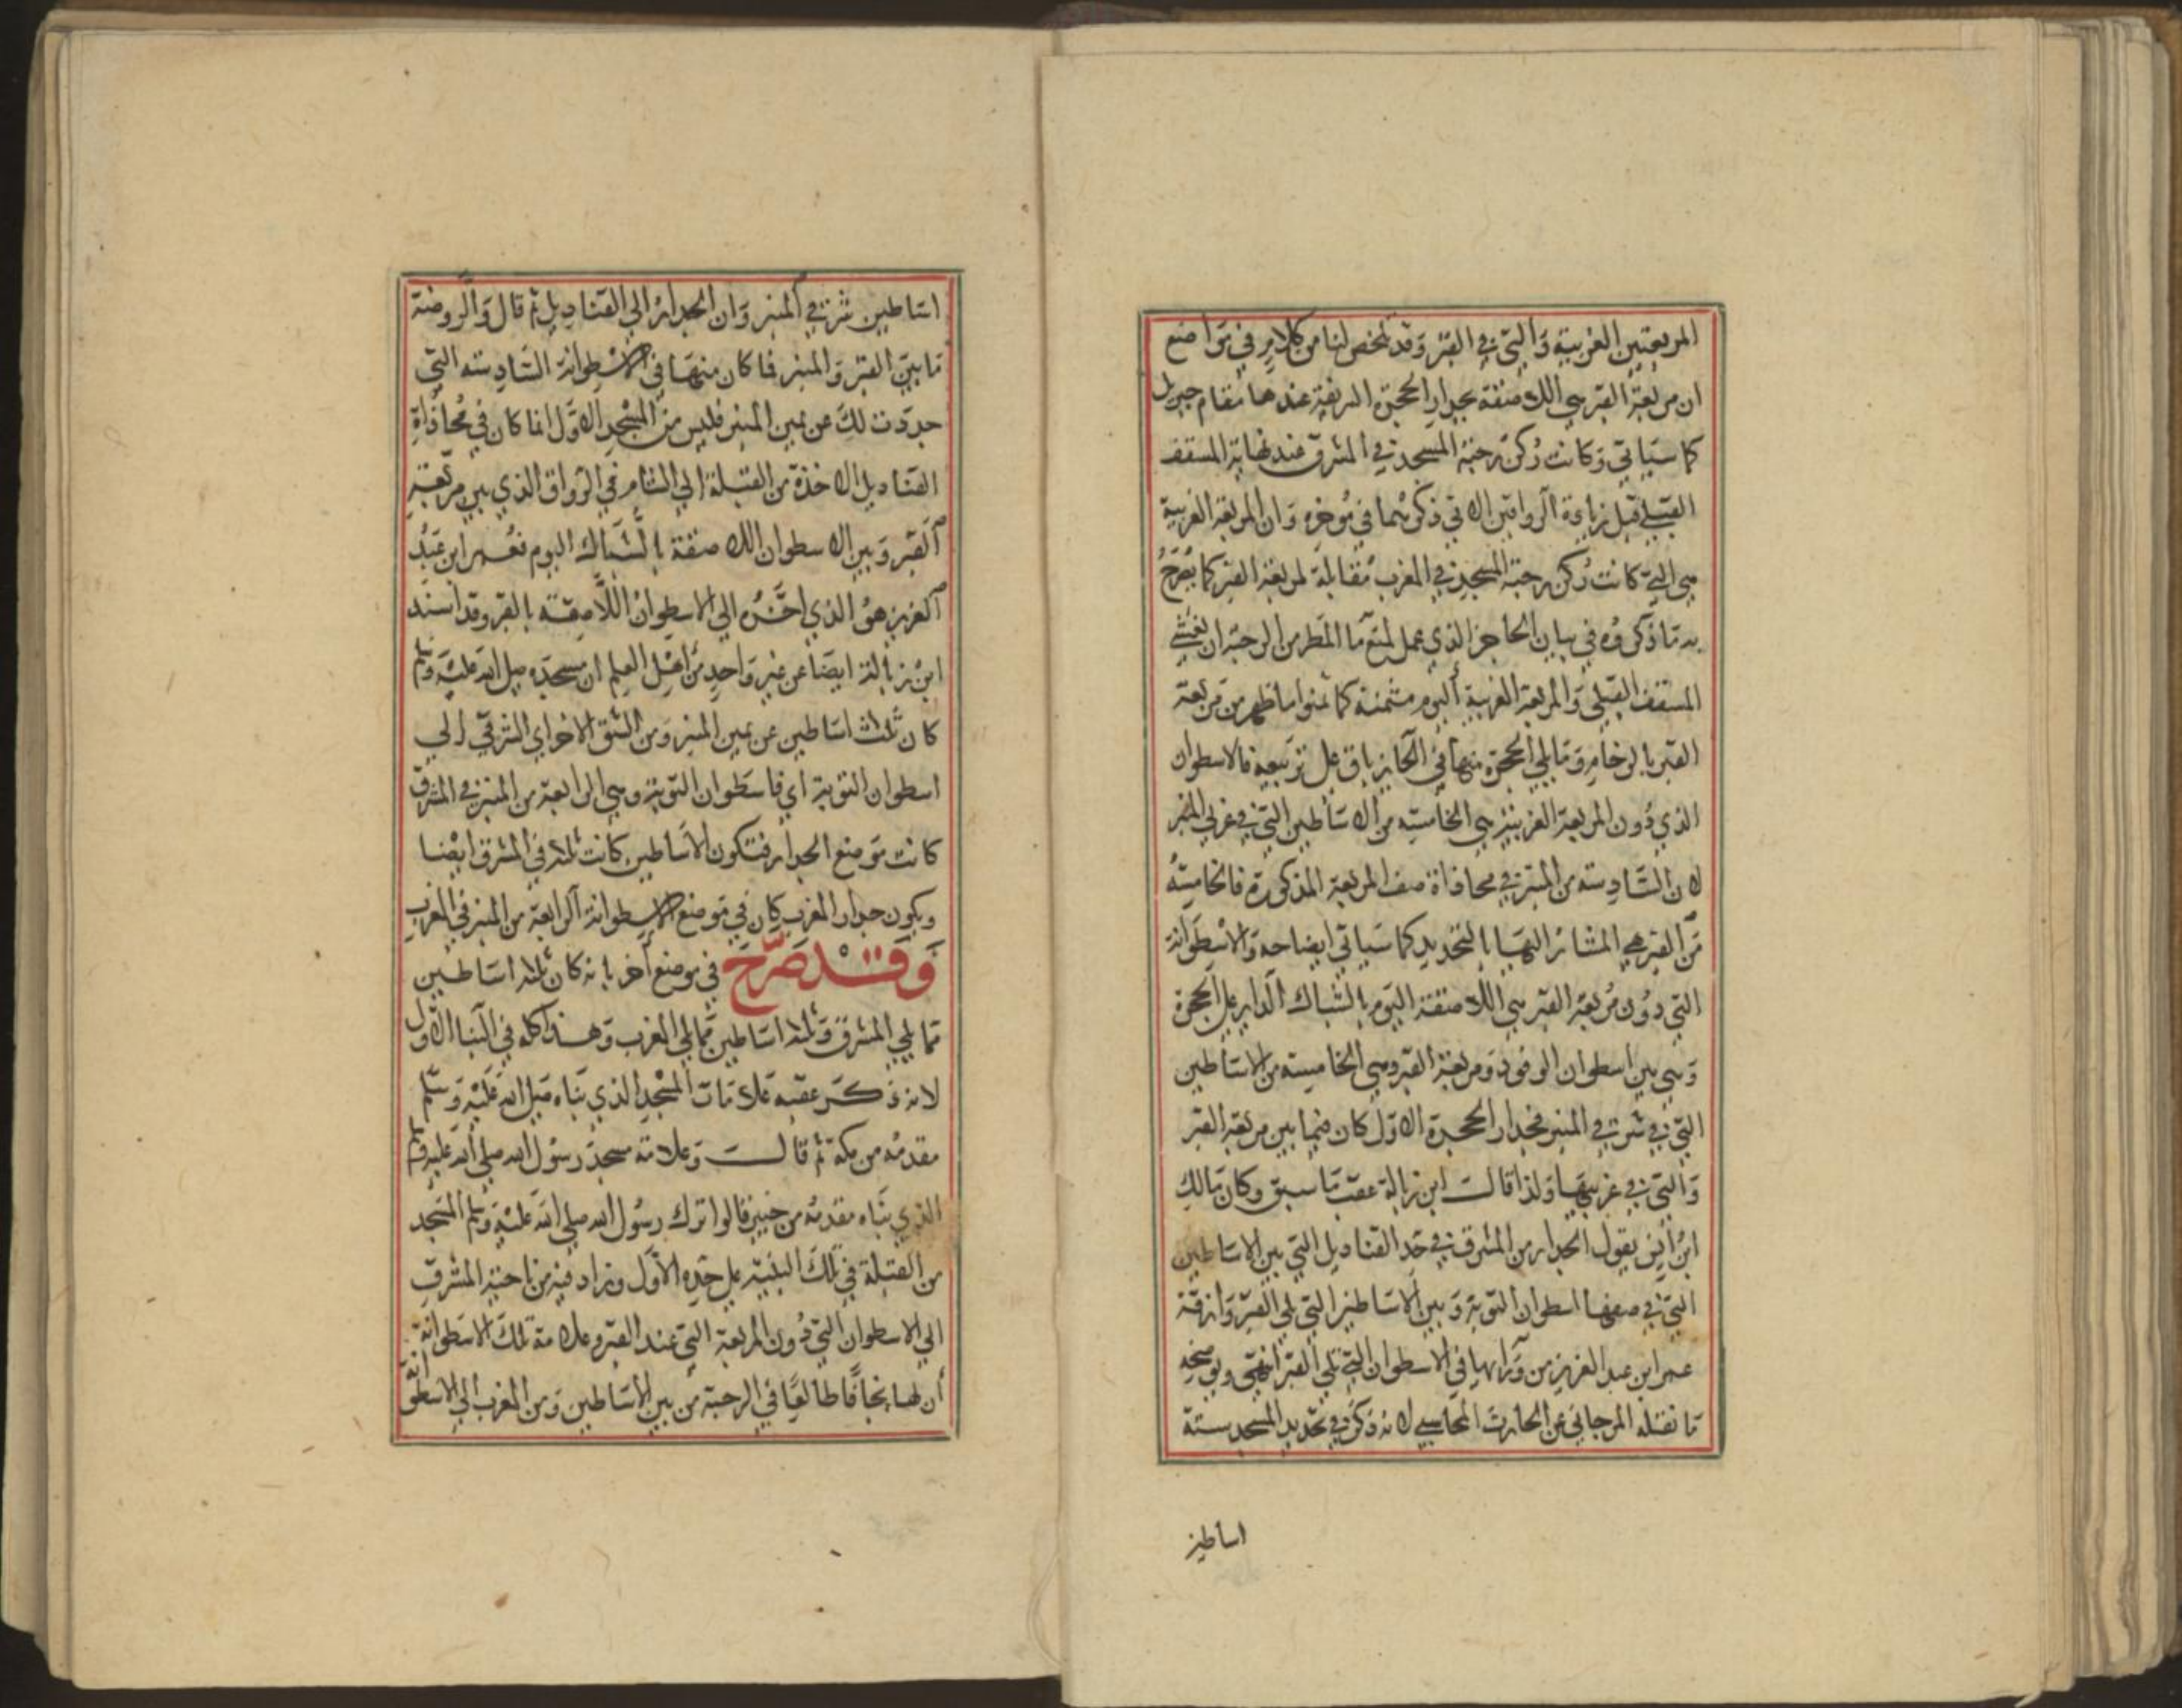 المربعتين الغربية والتي في القبر وقد تلخص لنا من كلامهم في مواضع
ان مربعة القبر هي اللاصقة بجدار الحجرة الشريفة عندها مقام جبريل
كما سياتي وكانت ركن رحبة المسجد في المشرق عند نهاية المسقف
القبلي قبل زيادة الرواقين الاتي ذكرهما في مؤخره وان المربعة الغربية
هي التي كانت ركن رحبة المسجد في المغرب مقابلة لمربعة القبر كما يصرح
به ما ذكروه في بيان الحاجز الذي عمل لمنع ما المطر من الرحبة ان يغشي
المسقف القبلي والمربعة الغربية اليوم مثمنة كما ثمنوا ما ظهر من مربعة
القبر بالرخام وما يلي الحجرة منها في الحايز باق على تربيعه فالاسطوان
الذي دون المربعة الغربية هي الخامسة من الاساطين التي في غربي المنبر
لان السادسة من المنبر في محاذاة صف المربعة المذكورة فالخامسة
من القبر هي المشار اليها بالتحديد كما سياتي ايضاحه والاسطوانة
التي دون مربعة القبر هي اللاصقة اليوم بالشباك الداير على الحجرة
وهي بين اسطوان الوفود ومربعة القبر وهي الخامسة من الاساطين
التي في شرقي المنبر فجدار الحجرة الاول كان فيما بين مربعة القبر
والتي في غربيها ولذا قال ابن زبالة عقب ما سبق وكان مالك
ابن انس يقول الجدار من المشرق في حد القناديل التي بين الاساطين
التي في صفها اسطوان التوبة وبين الاساطين التي تلي القبر وازقة
عمر ابن عبد العزيز من ورايها في الاسطوان التي تلي القبر انتهى ويوضحه
ما نقله المرجاني عن الحارث المحاسبي لانه ذكر في تحديد المسجد ستة
اساطين
اساطين شرقي المنبر وان الجدار الي القناديل ثم قال والروضة
ما بين القبر والمنبر فما كان منها في الاسطوانة السادسة التي
حددت لك عن يمين المنبر فليس من المسجد الاول انما كان في محاذاة
القناديل الاخذة من القبلة الي الشام في الرواق الذي بين مربعة
القبر وبين الاسطوان اللاصقة بالشباك اليوم فعمر ابن عبد
العزيز هو الذي اخره الي الاسطوان اللاصقة بالقبر وقد اسند
ابن زبالة ايضا عن غير واحد من اهل العلم ان مسجده صلى الله عليه وسلم
كان ثلث اساطين عن يمين المنبر ومن الشق الاخر اي الشرقي الي
اسطوان التوبة اي فاسطوان التوبة وهي الرابعة من المنبر في المشرق
كانت موضع الجدار فتكون الاساطين كانت ثلثه في المشرق ايضا
ويكون جدار المغرب كان في موضع الاسطوانة الرابعة من المنبر في المغرب
وقد صرح في موضع اخر بانه كان ثلثه اساطين
مما يلي المشرق وثلثه اساطين مما يلي المغرب وهذا كله في البنا الاول
لانه ذكر عقبه علامات المسجد الذي بناه صلى الله عليه وسلم
مقدمه من مكة ثم قال وعلامة مسجد رسول الله صلى الله عليه وسلم
الذي بناه مقدمه من خيبر قالوا ترك رسول الله صلى الله عليه وسلم المسجد
من القبلة في تلك البنية على حده الاول وزاد فيه من ناحية المشرق
الي الاسطوان التي دون المربعة التي عند القبر وعلامة تلك الاسطوانة
ان لها نجافا طالعا في الرحبة من بين الاساطين ومن المغرب الي الاسطوانة